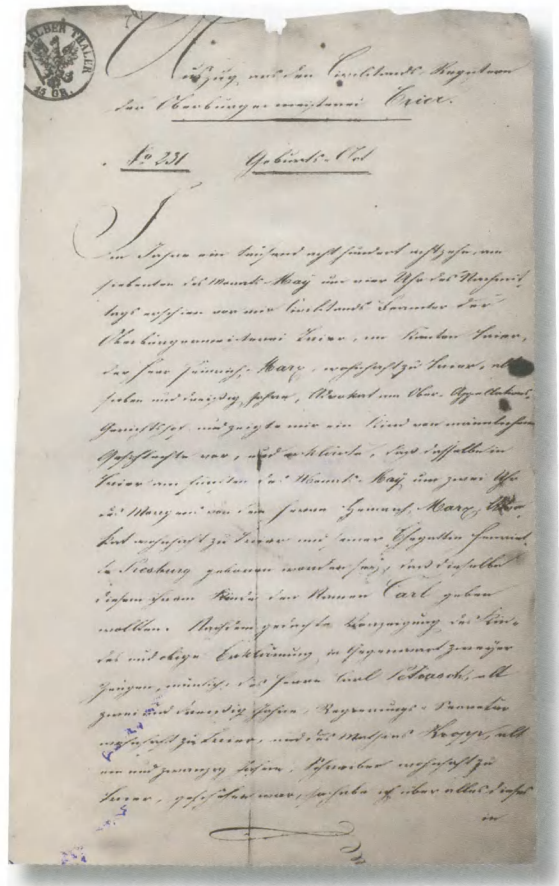 HALBER THALER
15 GR.
Auszug aus den Civilstands-Registern
der Oberbürgermeisterei Trier.
No 231 Geburts-Act
Im Jahre ein tausend acht hundert achtzehn, am
siebenten des Monats May um vier Uhr des Nachmit-
tags erschien vor mir Civilstands Beamter der
Oberbürgermeisterei Trier, im Kanton Trier,
der Herr Heinrich Marx, wohnhaft zu Trier, alt
sieben und dreißig Jahre, Advokat am Ober-Appellations-
Gerichtshof und zeigte mir ein Kind von männlichem
Geschlechte vor, und erklärte, daß dasselbe in
Trier am fünften des Monats May um zwei Uhr
des Morgens von dem Herrn Heinrich Marx, Advo-
kat wohnhaft zu Trier und seiner Ehegattin Henriet-
te Presburg geboren worden sey, und daß dieselbe
diesem ihrem Kinde den Namen Carl geben
wollten. Nachdem gedachte Vorzeigung des Kin-
des und obige Erklärung in Gegenwart zweyer
Zeugen, nämlich: des Herrn Carl Petrasch, alt
zwei und dreißig Jahre, Regierungs-Secretär
wohnhaft zu Trier, und des Mathias Kropp, alt
ein und zwanzig Jahre, Schreiber wohnhaft zu
Trier, geschehen war, so habe ich über alles dieses
in